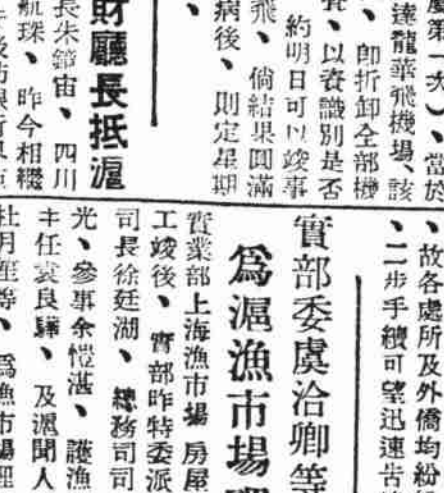 第一次）、當於
達龍華飛機場、該
、卽折卸全部機
、以資識別是否
約明日可以竣事
飛、倘結果圓滿
病後、則定星期
、
財廳長抵滬
長朱鏡宙、四川
航琛、昨今相繼
、故各處所及外僑均紛
、二步手續可望迅速告
實部委虞洽卿等
爲滬漁市場理
實業部上海漁市場房屋
工竣後、實部昨特委派
司長徐廷湖、總務司司
光、參事余愷湛、護漁
主任袁良驊、及滬聞人
杜月笙等、爲漁市場理